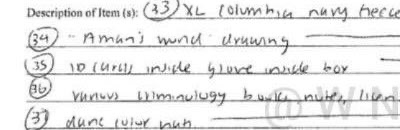 Description of Item (s): (33) XL Columbia navy fleece
(34) "Aman's mind" drawing
(35) ID cards inside glove inside box
(36) various criminology books, notes,
(37) color
W N